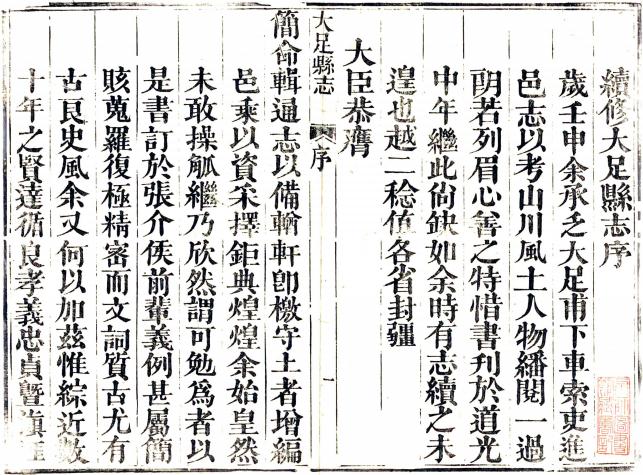 續修大足縣志序
歲壬申余承乏大足甫下車索吏進
邑志以考山川風土人物繙閱一過
朗若列眉心善之特惜書刊於道光
中年繼此尙缺如余時有志續之未
遑也越二稔值各省封疆
大臣恭膺
大足縣志 序 一
簡命輯通志以備輶軒卽檄守土者增編
邑乘以資采擇鉅典煌煌余始皇然
未敢操觚繼乃欣然謂可勉爲者以
是書訂於張介侯前輩義例甚屬簡
賅蒐羅復極精密而文詞質古尤有
古良史風余又何以加茲惟綜近數
十年之賢達循良孝義忠貞曁滇